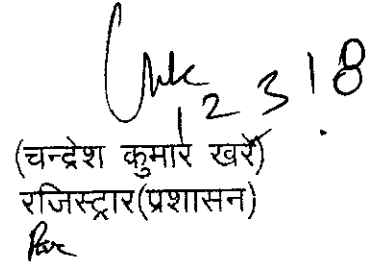 12318
(चन्द्रेश कुमार खरे)
रजिस्ट्रार(प्रशासन)